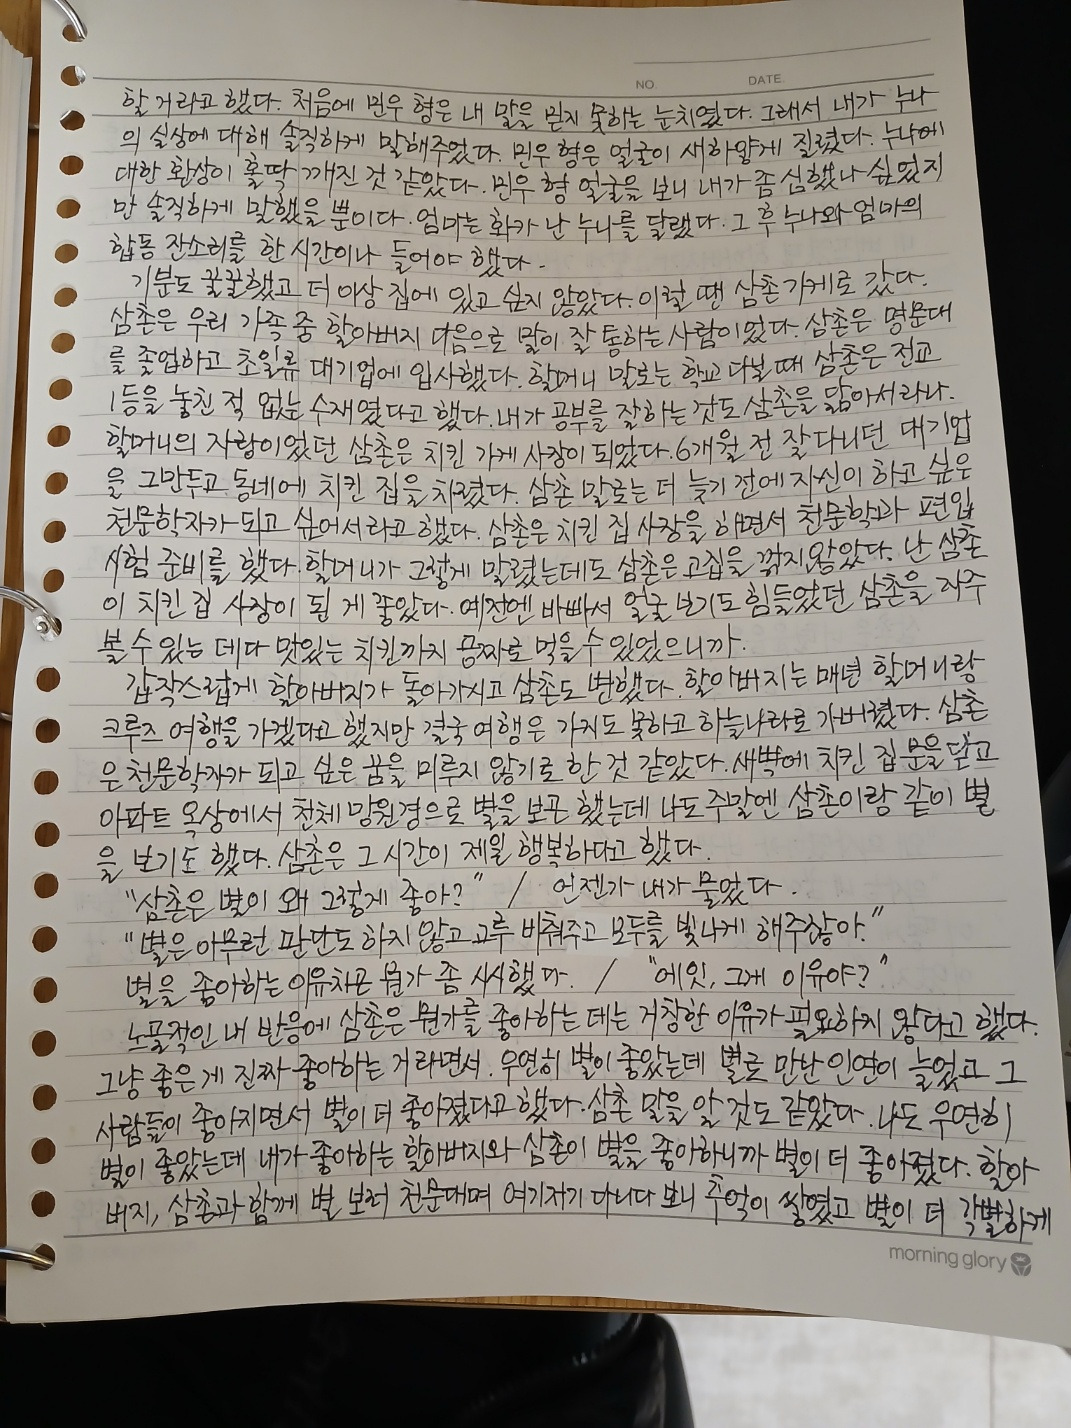 NO. DATE.
할 거라고 했다. 처음에 민우 형은 내 말을 믿지 못하는 눈치였다. 그래서 내가 누나
의 실상에 대해 솔직하게 말해주었다. 민우 형은 얼굴이 새하얗게 질렸다. 누나에
대한 환상이 홀딱 깨진 것 같았다. 민우 형 얼굴을 보니 내가 좀 심했나 싶었지
만 솔직하게 말했을 뿐이다. 엄마는 화가 난 누나를 달랬다. 그 후 누나와 엄마의
합동 잔소리를 한 시간이나 들어야 했다.
기분도 꿀꿀했고 더 이상 집에 있고 싶지 않았다. 이럴 땐 삼촌 가게로 갔다.
삼촌은 우리 가족 중 할아버지 다음으로 말이 잘 통하는 사람이었다. 삼촌은 명문대
를 졸업하고 초일류 대기업에 입사했다. 할머니 말로는 학교 다닐 때 삼촌은 전교
1등을 놓친 적 없는 수재였다고 했다. 내가 공부를 잘하는 것도 삼촌을 닮아서라나.
할머니의 자랑이었던 삼촌은 치킨 가게 사장이 되었다. 6개월 전 잘 다니던 대기업
을 그만두고 동네에 치킨 집을 차렸다. 삼촌 말로는 더 늦기 전에 자신이 하고 싶은
천문학자가 되고 싶어서라고 했다. 삼촌은 치킨 집 사장을 하면서 천문학과 편입
시험 준비를 했다. 할머니가 그렇게 말렸는데도 삼촌은 고집을 꺾지 않았다. 난 삼촌
이 치킨 집 사장이 된 게 좋았다. 예전엔 바빠서 얼굴 보기도 힘들었던 삼촌을 자주
볼 수 있는 데다 맛있는 치킨까지 공짜로 먹을 수 있었으니까.
갑작스럽게 할아버지가 돌아가시고 삼촌도 변했다. 할아버지는 매년 할머니랑
크루즈 여행을 가겠다고 했지만 결국 여행은 가지도 못하고 하늘나라로 가버렸다. 삼촌
은 천문학자가 되고 싶은 꿈을 미루지 않기로 한 것 같았다. 새벽에 치킨 집 문을 닫고
아파트 옥상에서 천체 망원경으로 별을 보곤 했는데 나도 주말엔 삼촌이랑 같이 별
을 보기도 했다. 삼촌은 그 시간이 제일 행복하다고 했다.
"삼촌은 별이 왜 그렇게 좋아?" / 언젠가 내가 물었다.
"별은 아무런 판단도 하지 않고 고루 비춰주고 모두를 빛나게 해주잖아."
별을 좋아하는 이유치곤 뭔가 좀 시시했다. / "에잇, 그게 이유야?"
노골적인 내 반응에 삼촌은 뭔가를 좋아하는 데는 거창한 이유가 필요하지 않다고 했다.
그냥 좋은 게 진짜 좋아하는 거라면서. 우연히 별이 좋았는데 별로 만난 인연이 늘었고 그
사람들이 좋아지면서 별이 더 좋아졌다고 했다. 삼촌 말을 알 것도 같았다. 나도 우연히
별이 좋았는데 내가 좋아하는 할아버지와 삼촌이 별을 좋아하니까 별이 더 좋아졌다. 할아
버지, 삼촌과 함께 별 보러 천문대며 여기저기 다니다 보니 추억이 쌓였고 별이 더 각별하게
morning glory